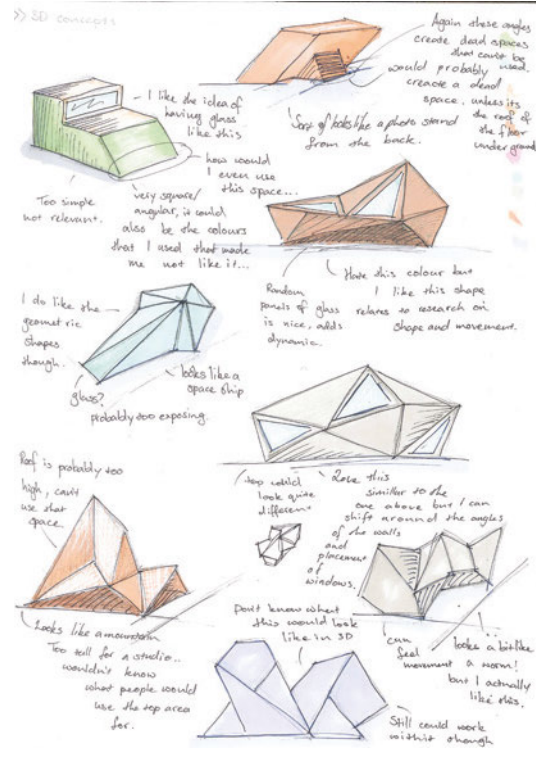 >> 3D concepts
Again these angles
create dead spaces
that can't be
used.
would probably
create a dead
space, unless its
the roof of
the floor
under ground
Sort of looks like a photo stand
from the back.
I like the idea of
having glass
like this
how would
I even use
this space...
Too simple
not relevant.
very square/
angular, it could
also be the colours
that I used that made
me not like it...
Hate this colour but
I like this shape
relates to research on
shape and movement.
Random
panels of glass
is nice, adds
dynamic.
I do like the
geometric
shapes
though.
glass?
probably too exposing.
looks like a
space ship
top would
look quite
different
Love this
simillar to the
one above but I can
shift around the angles
of the walls
and
placement
of
windows.
Roof is probably too
high, can't
use that
space.
Looks like a mountain
Too tall for a studio..
wouldn't know
what people would
use the top area
for.
Don't know what
this would look
like in 3D
can
feel
movement
looks a bit like
a worm!
but I actually
like this.
Still could work
with it though